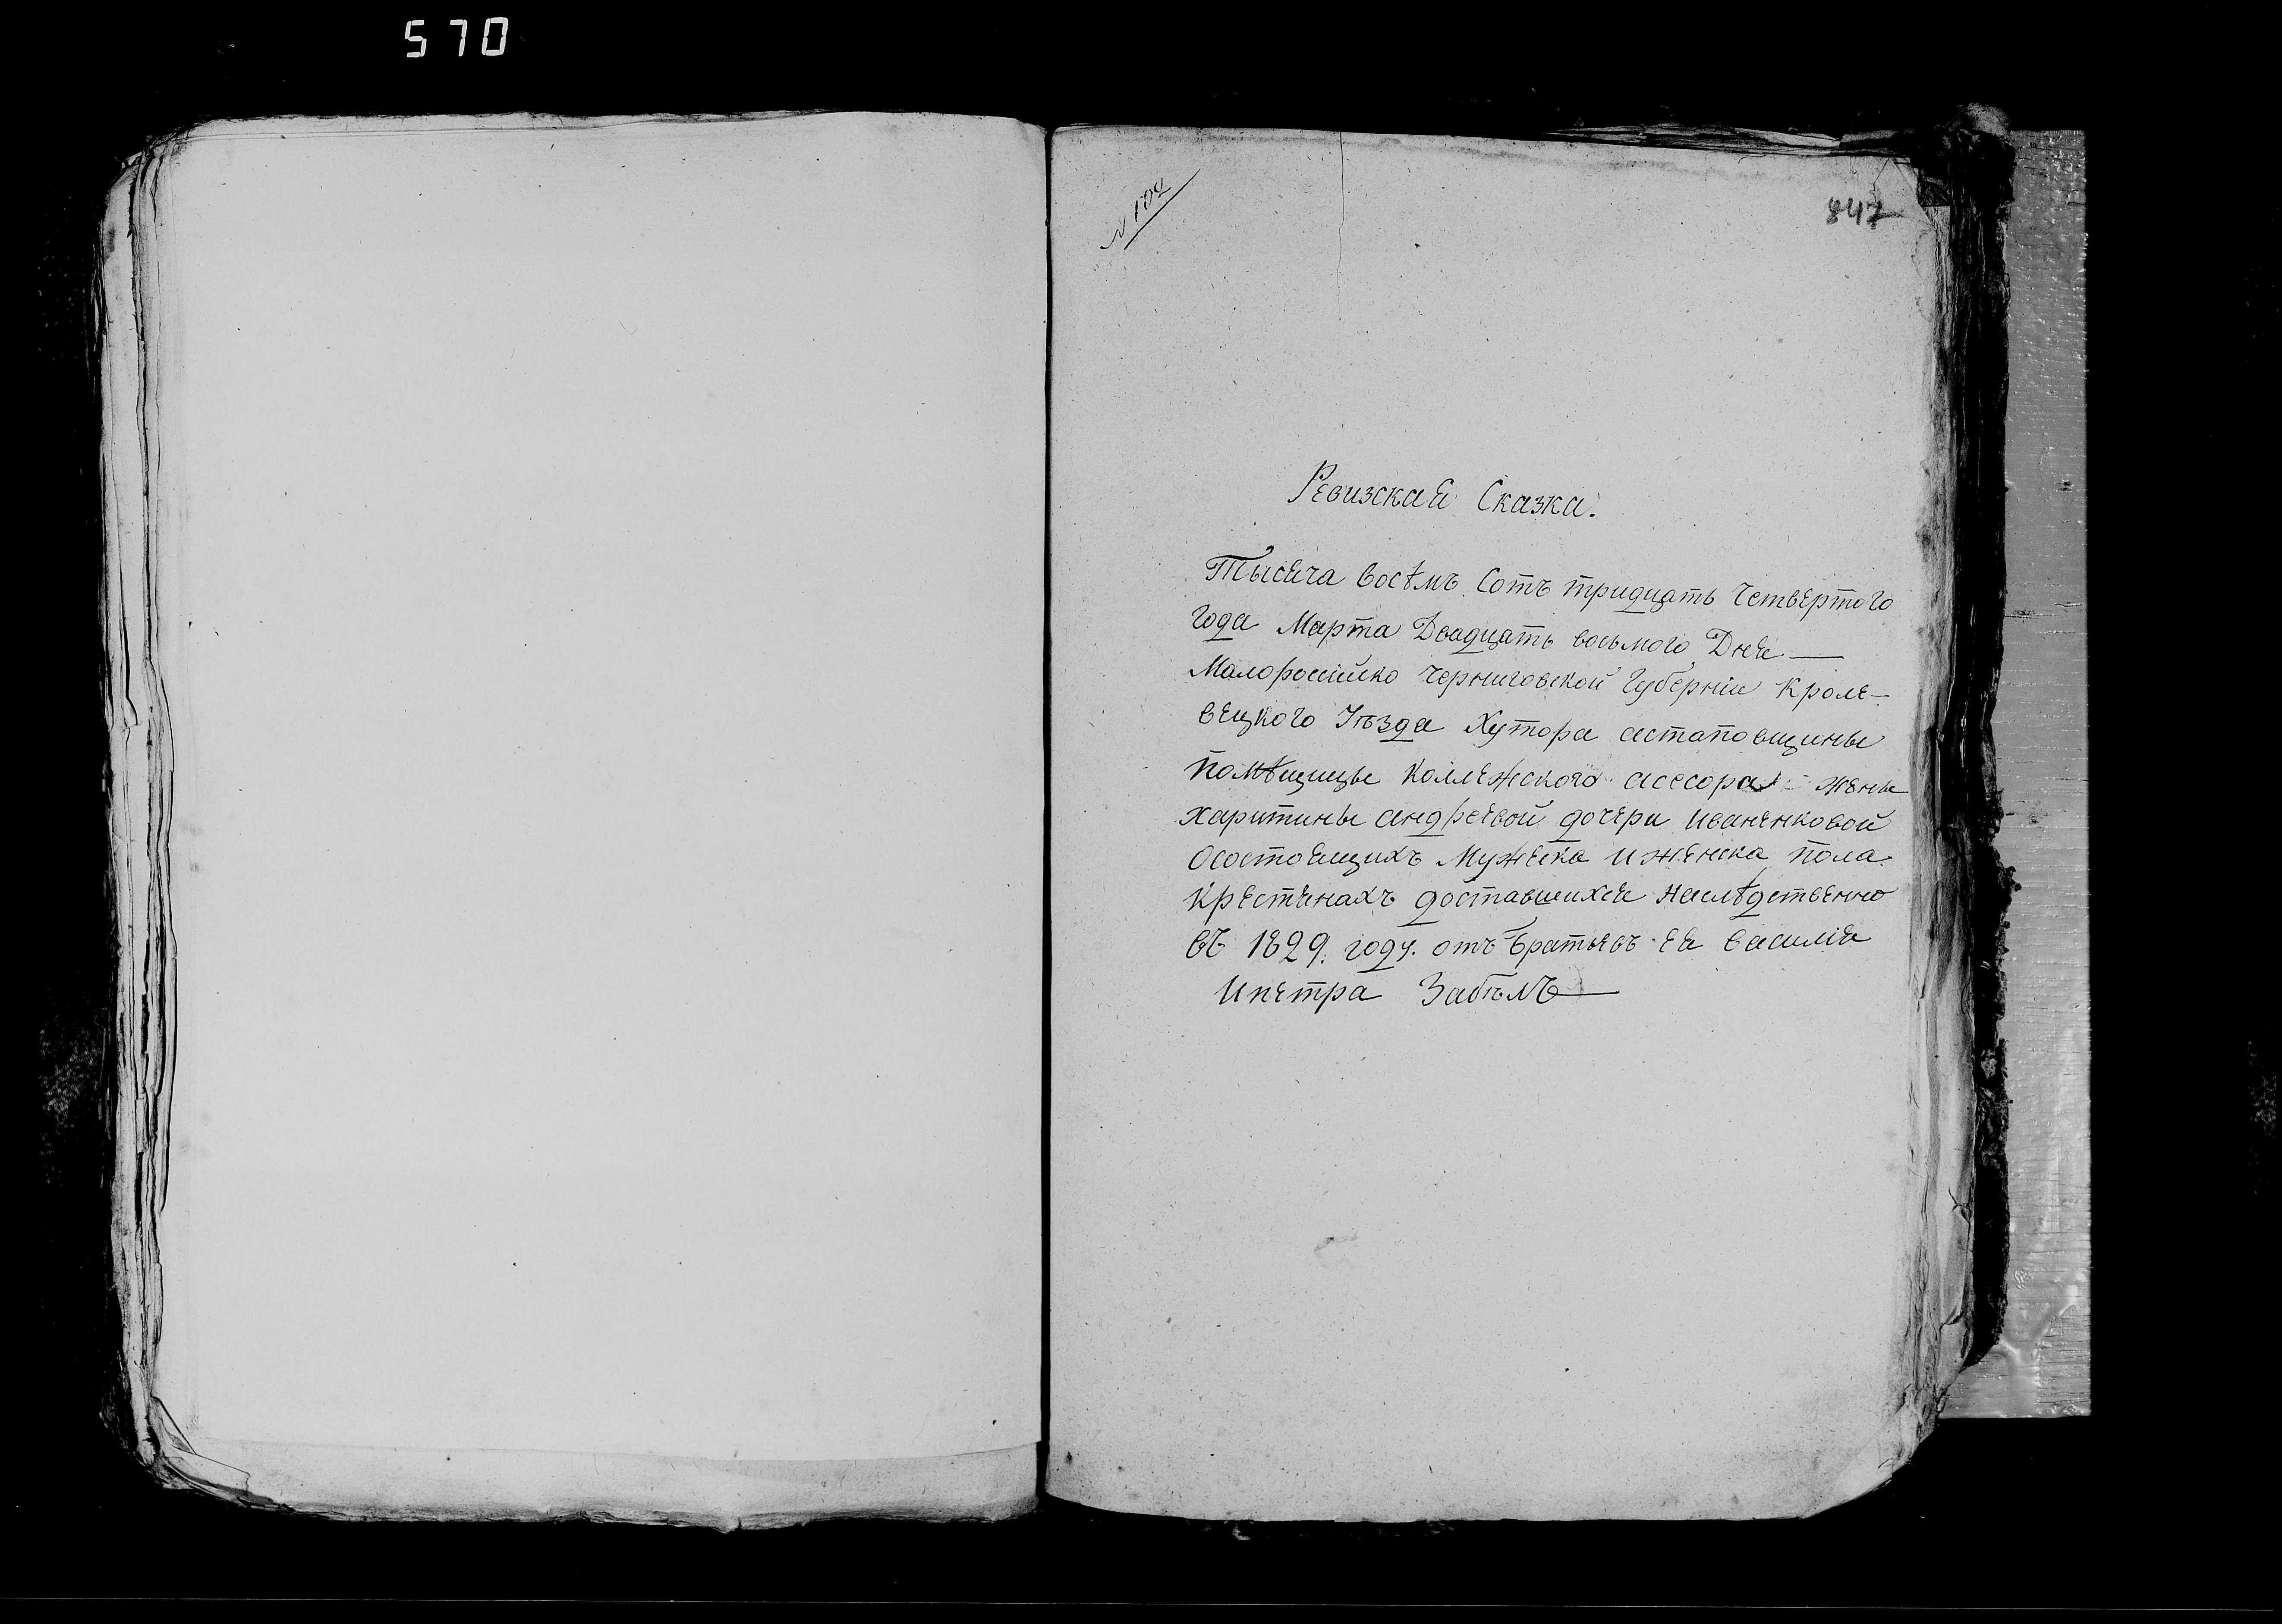 570
N 102
847
Ревизская Сказка.
Тысяча восѣмъ Сотъ тридцать четвертого
года Марта Двадцать восьмого Дня —
Малоросійско черниговской Губерніи Кроле-
вецкого Уѣзда Хутора астаповщины
помѣщицы колежского асесора жены
харитины андреевой дочери иваненковой
осостоящихъ мужеска иженска пола
крестянахъ доставшихся наслѣдственно
въ 1829. году. отъ братьевъ ея василія
ипетра Забѣлъ —